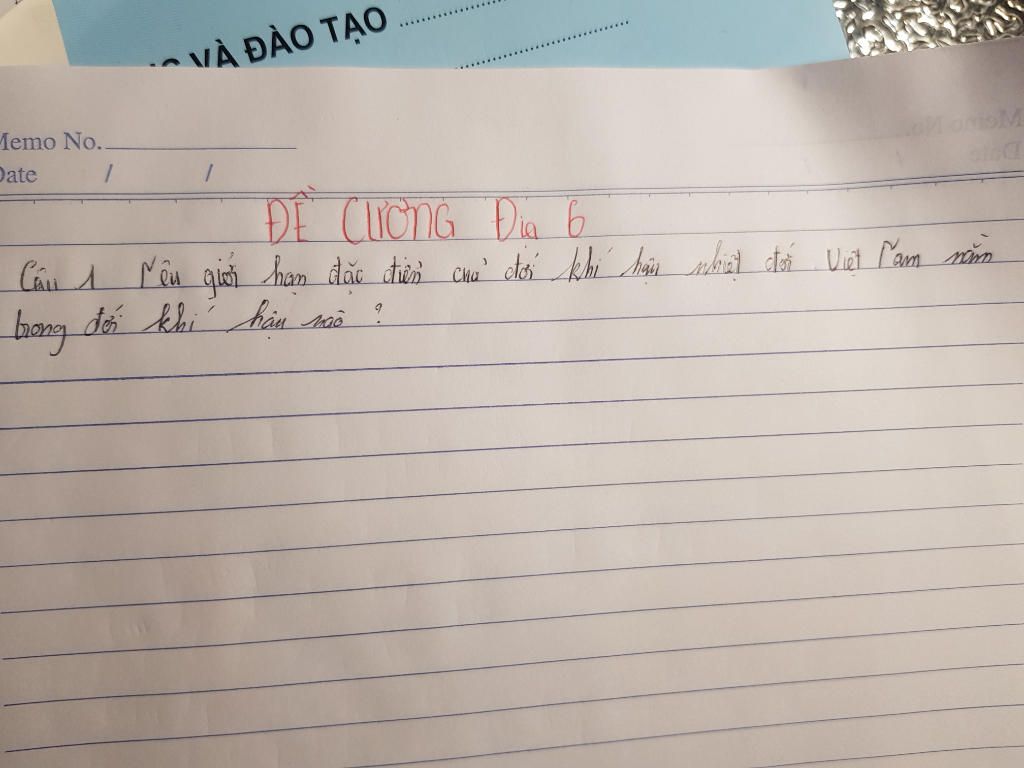 VÀ ĐÀO TẠO
Memo No.
Date / /
ĐỀ CƯƠNG Địa 6
Câu 1 Nêu giới hạn đặc điểm của đới khí hậu nhiệt đới Việt Nam nằm
trong đới khí hậu nào ?